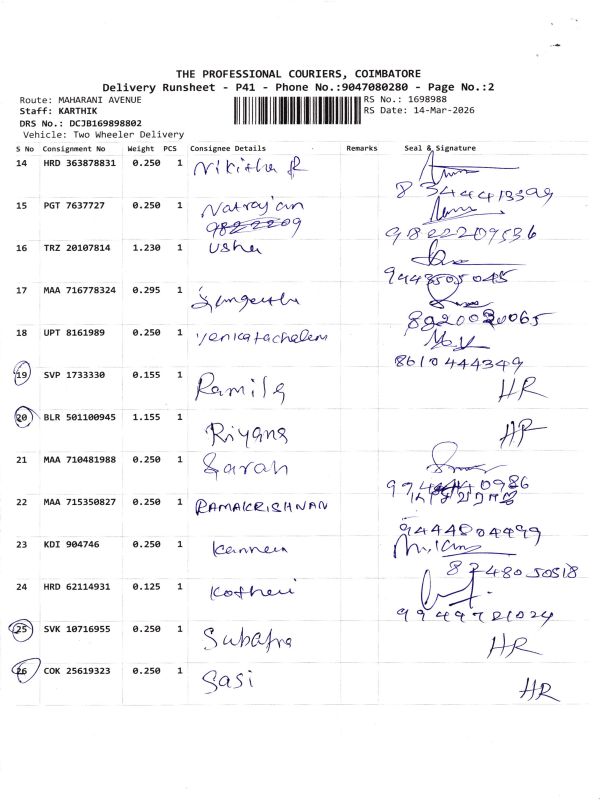 THE PROFESSIONAL COURIERS, COIMBATORE
Delivery Runsheet - P41 - Phone No.:9047080280 - Page No.:2
Route: MAHARANI AVENUE RS No.: 1698988
Staff: KARTHIK RS Date: 14-Mar-2026
DRS No.: DCJB169898802
Vehicle: Two Wheeler Delivery
S No Consignment No Weight PCS Consignee Details Remarks Seal & Signature
14 HRD 363878831 0.250 1 Nikitha R
8344413399
15 PGT 7637727 0.250 1 Natrajan
9822209
9822209536
16 TRZ 20107814 1.230 1 Usha
9448505045
17 MAA 716778324 0.295 1 Sangeetha
8920020065
18 UPT 8161989 0.250 1 Venkatachalem
8610444349
19 SVP 1733330 0.155 1 Ramila HR
20 BLR 501100945 1.155 1 Riyana HR
21 MAA 710481988 0.250 1 Sarah
22 MAA 715350827 0.250 1 RAMAKRISHNAN
9444804499
23 KDI 904746 0.250 1 Kannan
8248050518
24 HRD 62114931 0.125 1 Kothari
9949721024
25 SVK 10716955 0.250 1 Subatra HR
26 COK 25619323 0.250 1 Sasi HR